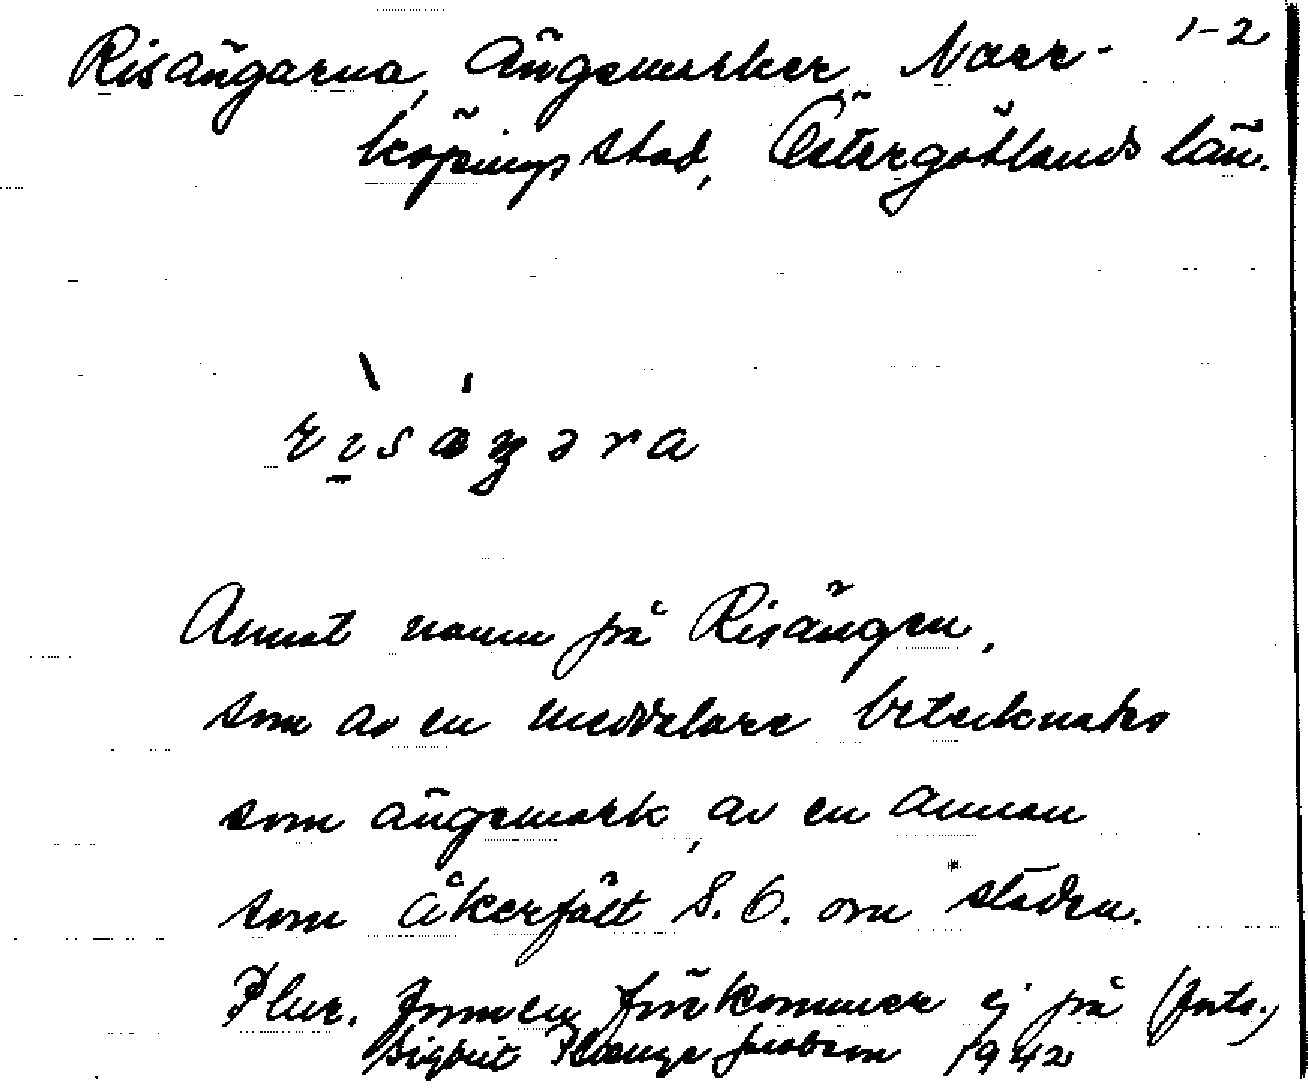 1-2
Risängarna, ängsmarker, Norr-
köpings stad, Östergötlands län.
Annat namn på Risängen,
som av en meddelare betecknats
som ängsmark, av en annan
som åkerfält S. Ö. om staden.
Plur. formen förkommer ej på (forts.)
Sigbrit Plænge Jacobson 1942